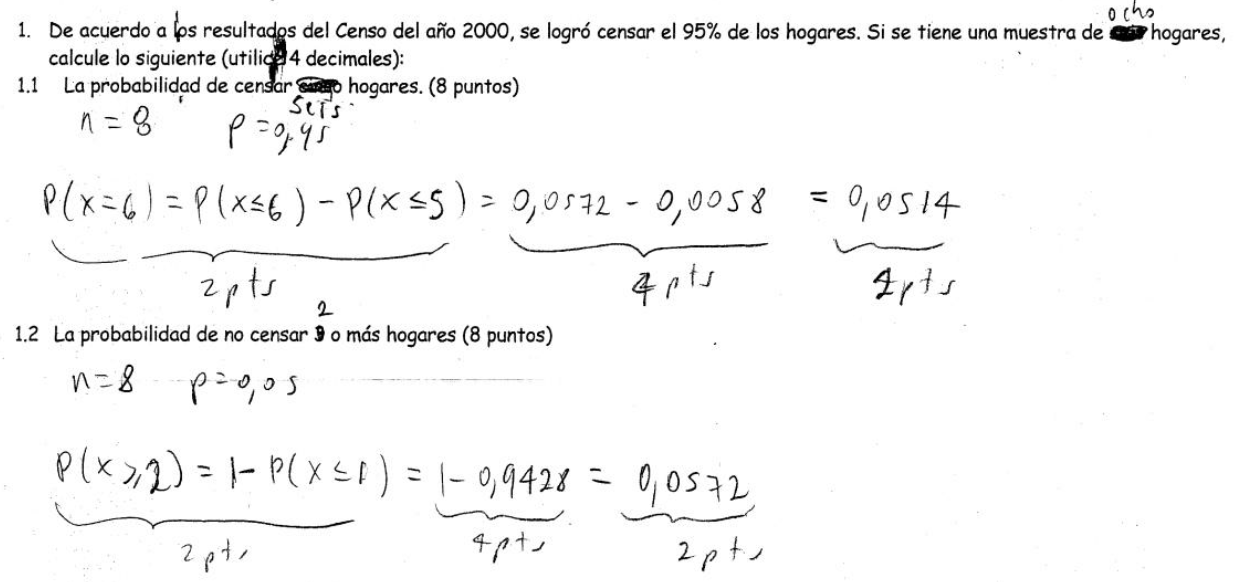 ocho
1. De acuerdo a los resultados del Censo del año 2000, se logró censar el 95% de los hogares. Si se tiene una muestra de hogares,
calcule lo siguiente (utilice 4 decimales):
1.1 La probabilidad de censar hogares. (8 puntos)
seis
n = 8 p = 0,95
P(x=6) = P(x≤6) - P(x≤5) = 0,0572 - 0,0058 = 0,0514
2pts 4 pts 2pts
2
1.2 La probabilidad de no censar o más hogares (8 puntos)
n=8 p=0,05
P(x≥2) = 1- P(x≤1) = 1- 0,9428 = 0,0572
2 pts 4pts 2pts